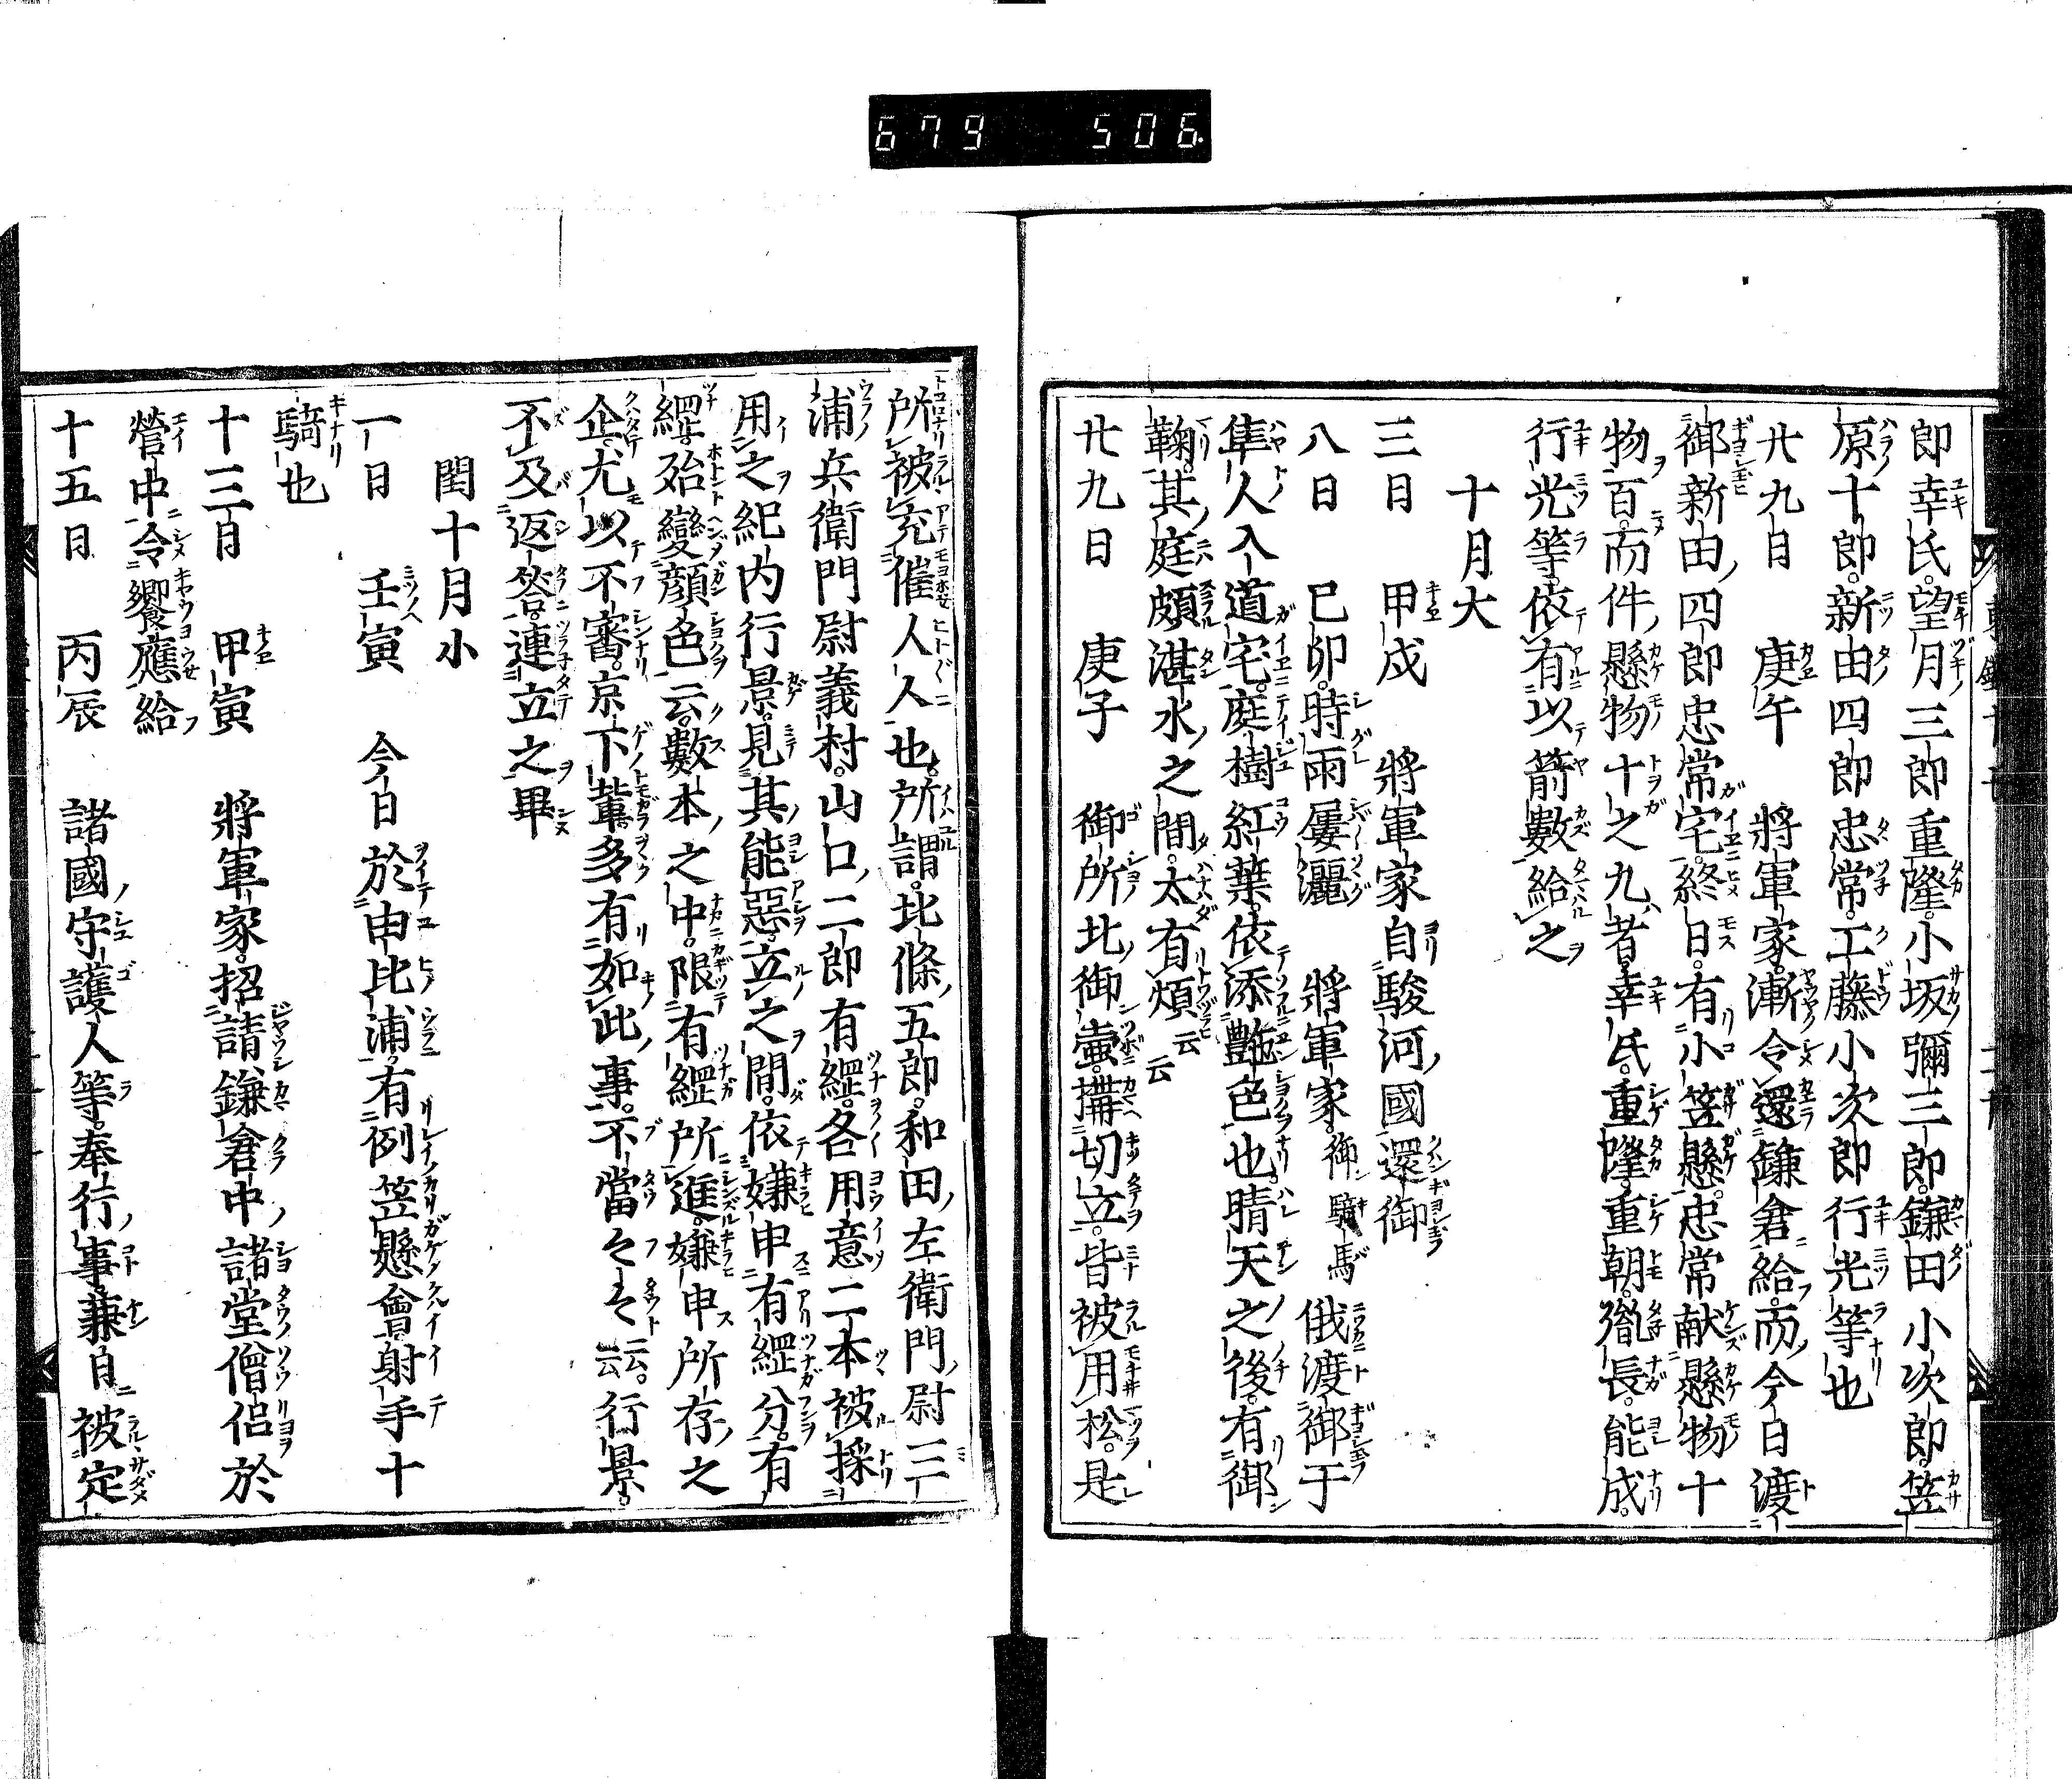 679 506
郎幸氏望月三郎重隆小坂彌三郎鎌田小次郎笠
原十郎新田四郎忠常工藤小次郎行光等也
廿九日 庚午 將軍家漸令還鎌倉給而今日渡
御新田四郎忠常宅終日有小笠懸忠常献懸物十
物百而件懸物十之九者幸氏重隆重朝胤長能成
行光等依有以箭數給之
十月大
三日 甲戌 將軍家自駿河國還御
八日 己卯時雨屢灑 將軍家御騎馬俄渡御于
隼人入道宅庭樹紅葉依添艷色也晴天之後有御
鞠其庭頗湛水之間太有煩云云
廿九日 庚子 御所北御壷構切立皆被用松是
所被充催人人也所謂北條五郎和田左衛門尉三
浦兵衛門尉義村山口二郎有繼各用意二本被採
用之紀内行景見其能惡立之間依嫌申有繼分有
繼殆變顔色云數本之中限有繼所進嫌申所存之
企尤以不審京下輩多有如此事不當々々云云行景
不及返答連立之畢
閏十月小
一日 壬寅 今日於由比浦有例笠懸會射手十
騎也
十三日 甲寅 將軍家招請鎌倉中諸堂僧侶於
營中令饗應給
十五日 丙辰 諸國守護人等奉行事兼日被定